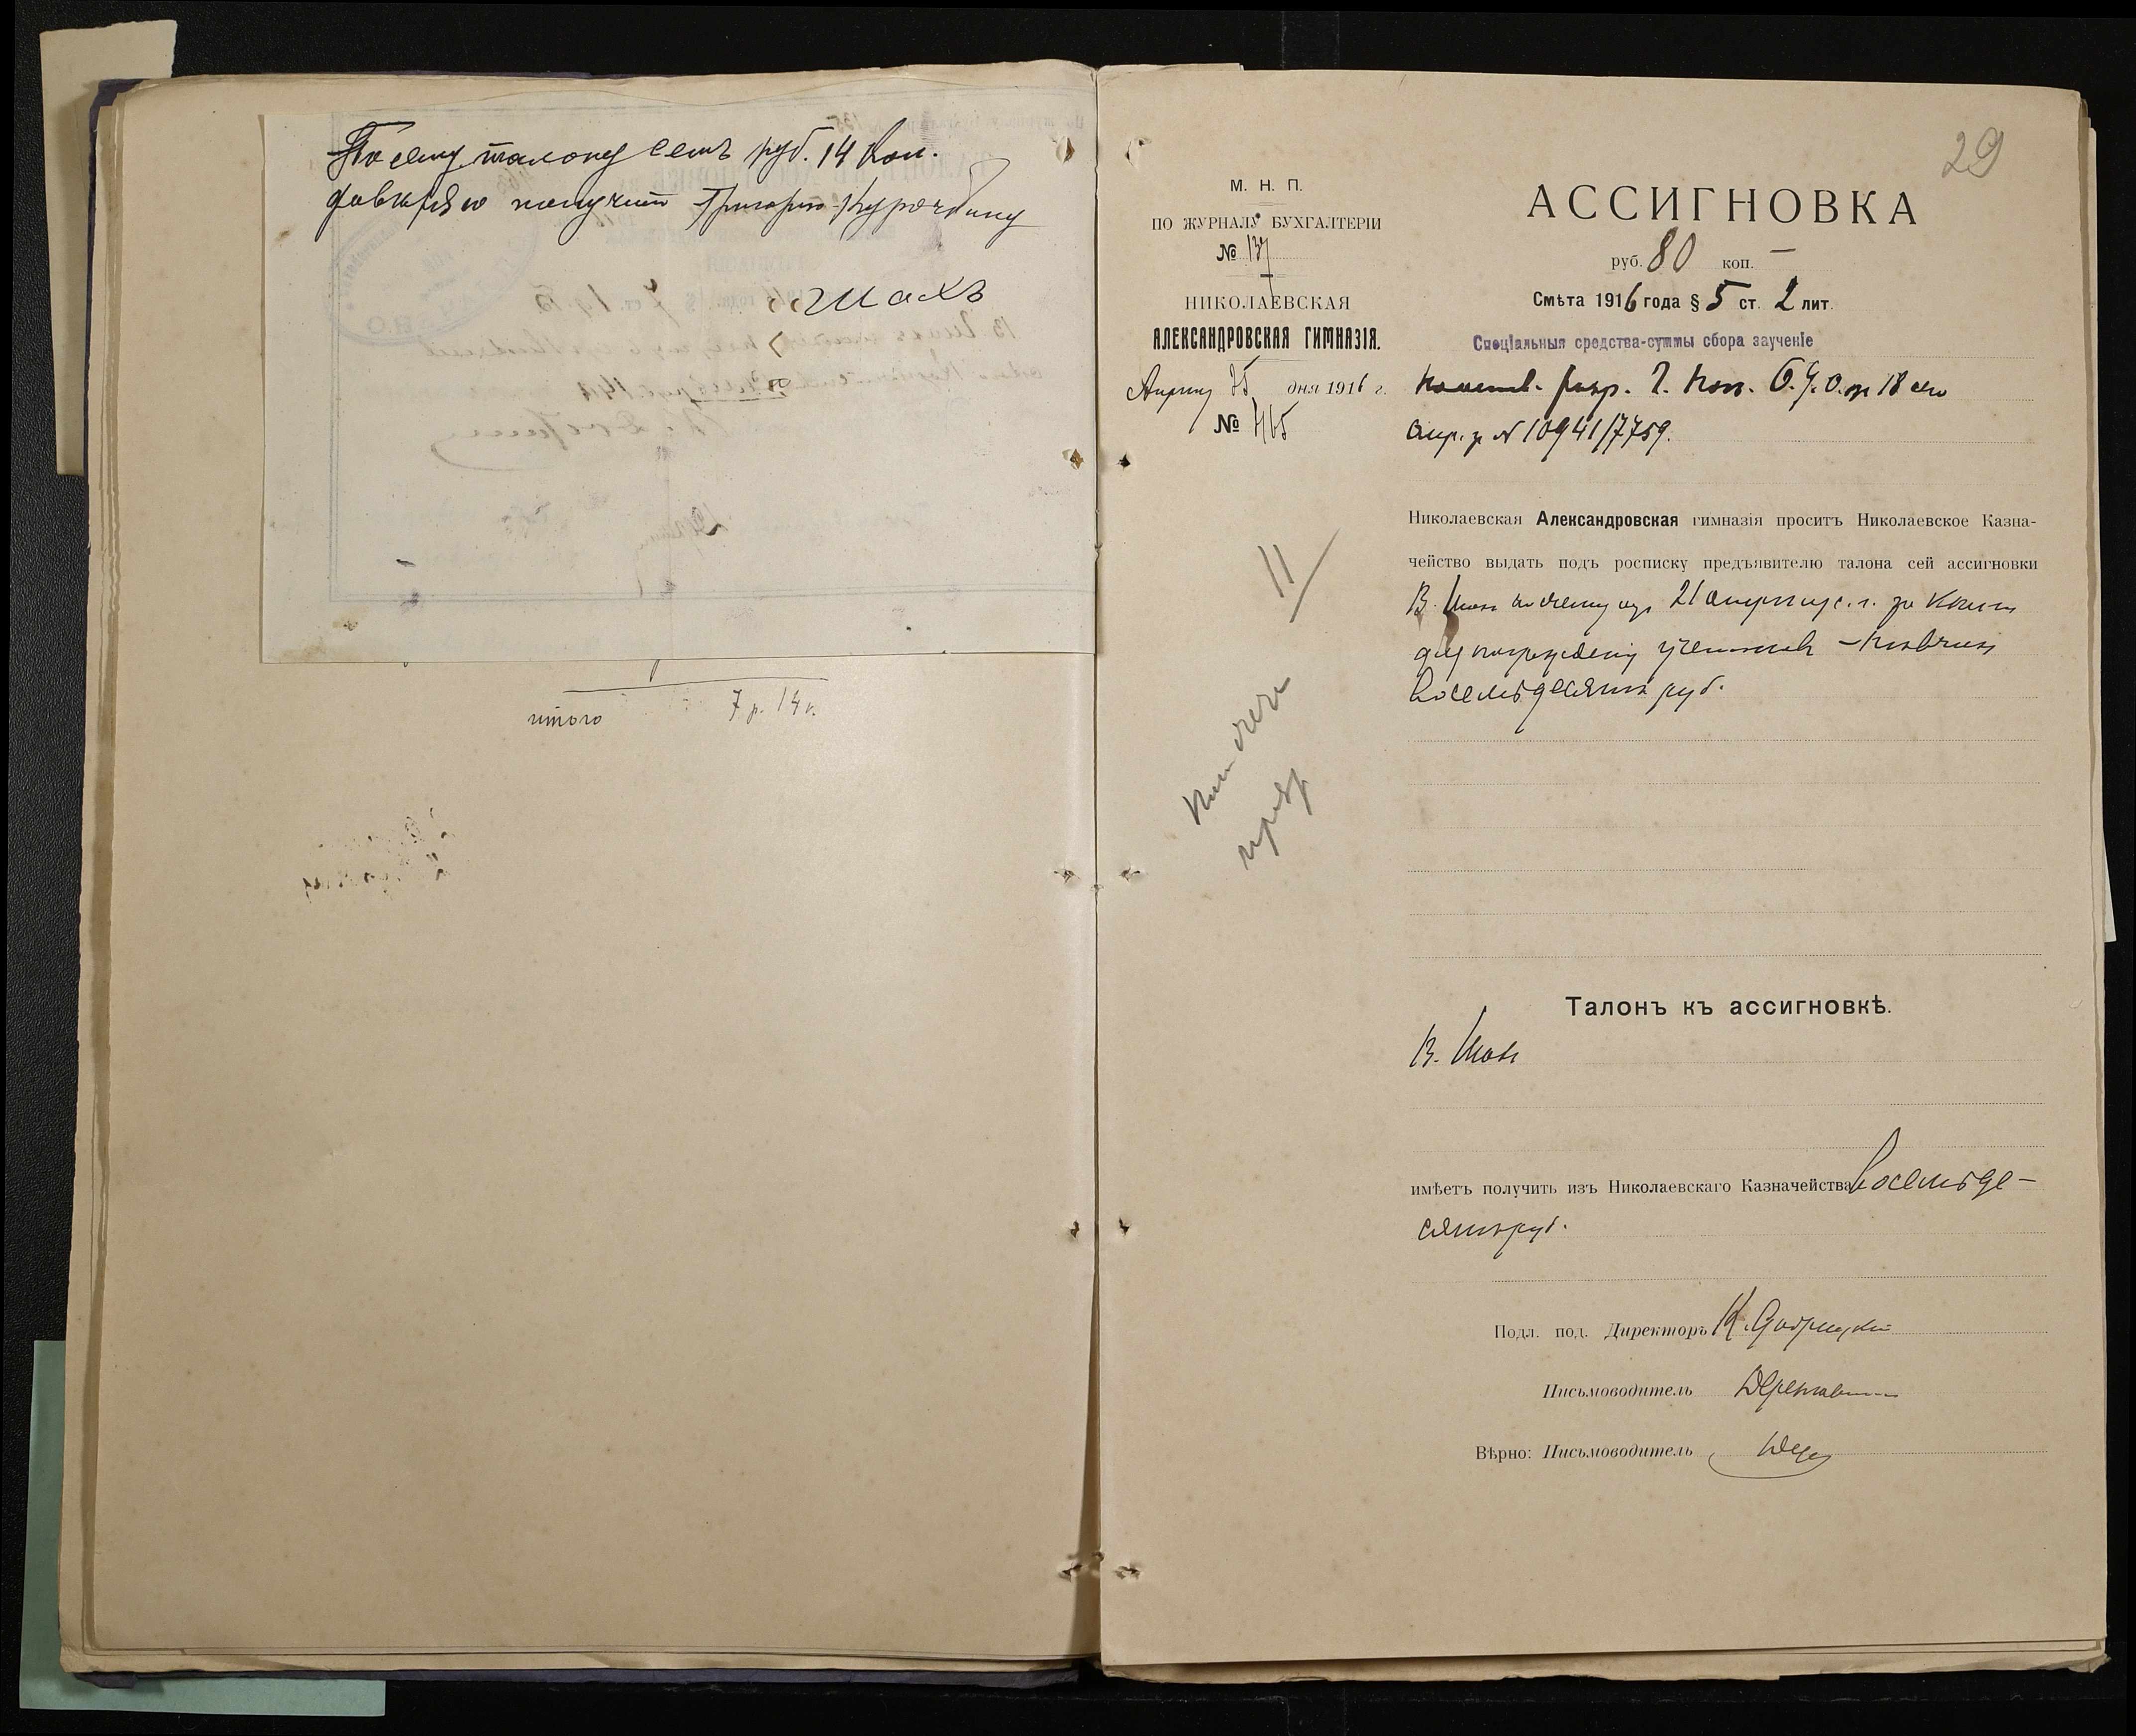 По сему талону семь руб. 14 коп.
довѣряю получить Григорію Курочкину
Шахъ
итого 7 р. 14 к.
29
М. Н. П.
ПО ЖУРНАЛУ БУХГАЛТЕРІИ
№ 137
НИКОЛАЕВСКАЯ
АЛЕКСАНДРОВСКАЯ ГИМНАЗІЯ.
Апрѣля 25 дня 1916 г.
№ 465
11
АССИГНОВКА
руб. 80 коп. —
Смѣта 1916 года § 5 ст. 2 лит.
Спеціальныя средства-суммы сбора заученіе
разр. Г. Поп. О. У. О. за 18 сего
апр. за № 10941/7759.
Николаевская Александровская гимназія проситъ Николаевское Казна-
чейство выдать подъ росписку предъявителю талона сей ассигновки
В. Шахъ по счету отъ 21 апрѣля с. г. за книги
для награжденія учениковъ
восемьдесятъ руб.
Талонъ къ ассигновкѣ.
В. Шахъ
имѣетъ получить изъ Николаевскаго Казначейства восемьде-
сятъ руб.
Подл. под. Директоръ К.
Письмоводитель
Вѣрно: Письмоводитель